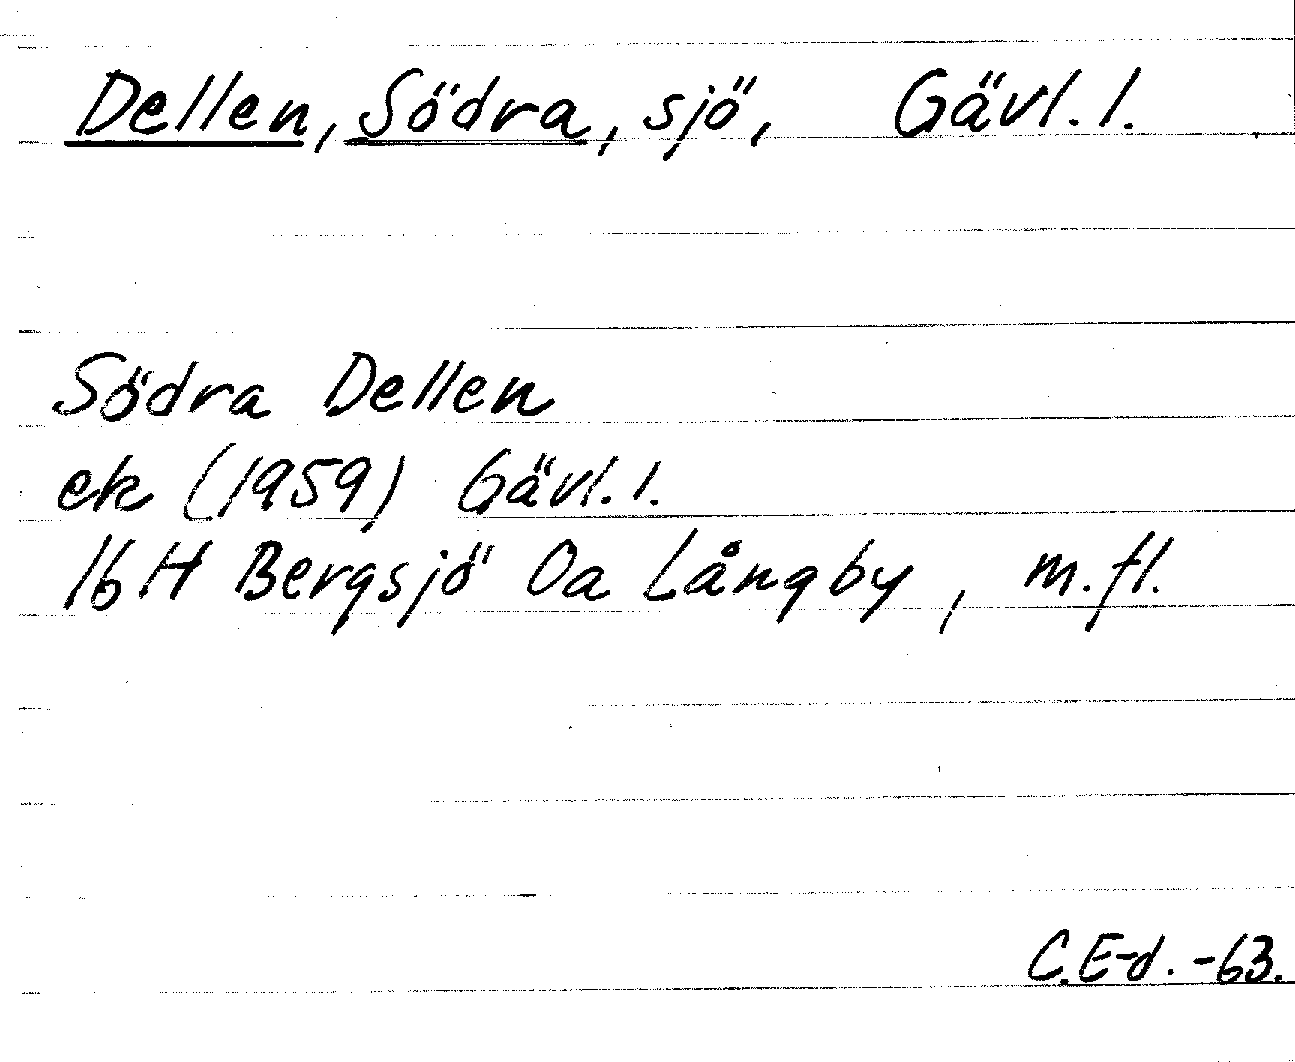 Dellen, Södra, sjö, Gävl. l.
Södra Dellen
ek (1959) Gävl. l.
16 H Bergsjö Oa Långby, m.fl.
C. E-d. -63.